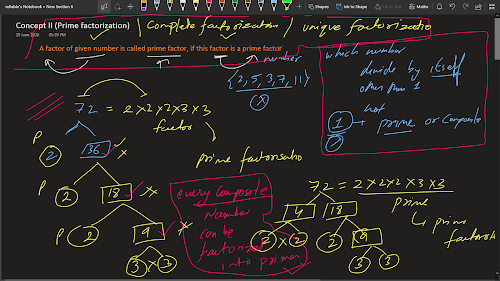 reliable's Notebook » New Section 6
Shapes
Ink to Shape
Ink to Text
Concept II (Prime factorization)
19 June 2020 05:39 PM
(Complete factorization) unique factorizatio
A factor of given number is called prime factor, if this factor is a prime factor
number
{2, 5, 3, 7, 11}
which number
divide by itself
other than 1
not
1 → prime or Composite
72 = 2×2×2×3×3
factor
prime factorisatio
P
2 36 ×
P
2 18 ×
P
2 9 ×
3 × 3
every Composite
Number
can be
factorize
into primes
72 = 2×2×2×3×3
prime
↳ prime
factors
4 18
2 × 2 2 9
3 3